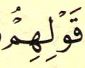 قَوْلِهِمُ